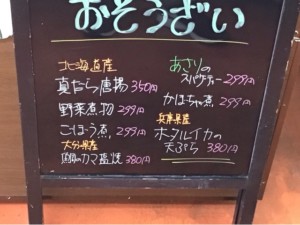 おそうざい
北海道産
真だら唐揚 350円
野菜煮物 299円
ごぼう煮 299円
大分県産
鯛のカマ塩焼 380円
あさりの
スパゲッティー 299円
かぼちゃ煮 299円
兵庫県産
ホタルイカの
天ぷら 380円